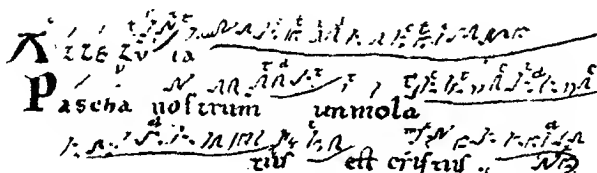 Azzezv ia
Pascha nostrum unmola
tus est cristus